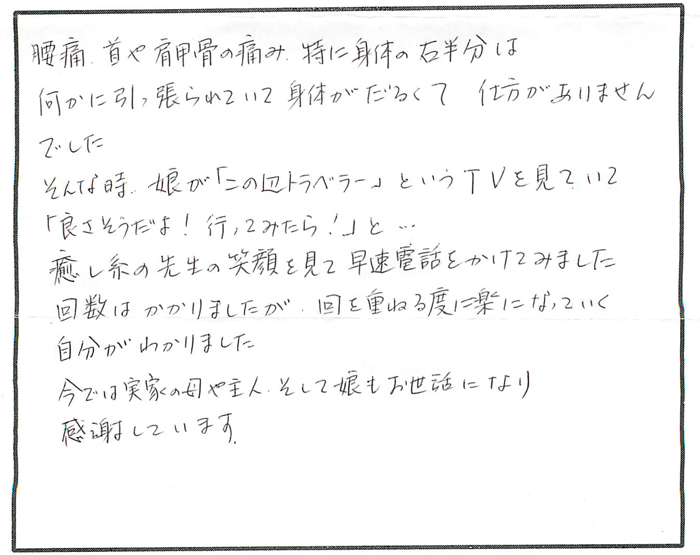 腰痛、首や肩甲骨の痛み、特に身体の右半分は
何かに引っ張られていて身体がだるくて 仕方がありません
でした
そんな時、娘が「この辺トラベラー」というTVを見ていて
「良さそうだよ!行ってみたら!」と…
癒し系の先生の笑顔を見て早速電話をかけてみました
回数はかかりましたが、回を重ねる度に楽になっていく
自分がわかりました
今では実家の母や主人、そして娘もお世話になり
感謝しています。